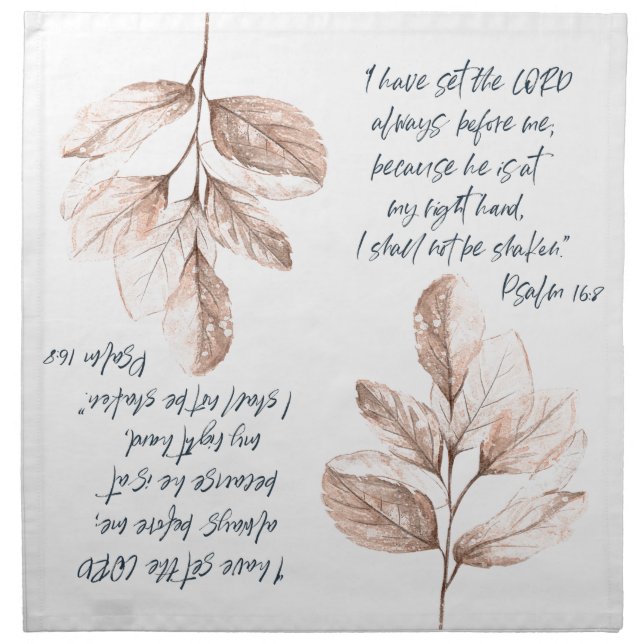 "I have set the LORD
always before me;
because he is at
my right hand,
I shall not be shaken."
Psalm 16:8
"I have set the LORD
always before me;
because he is at
my right hand,
I shall not be shaken."
Psalm 16:8